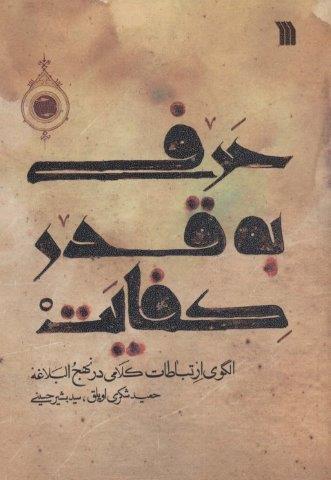 حرفی
به قدر
کفایت
الگوی ارتباطات کلامی در نهج البلاغه
حمید شکری اوبلق، سید بشیر حسینی